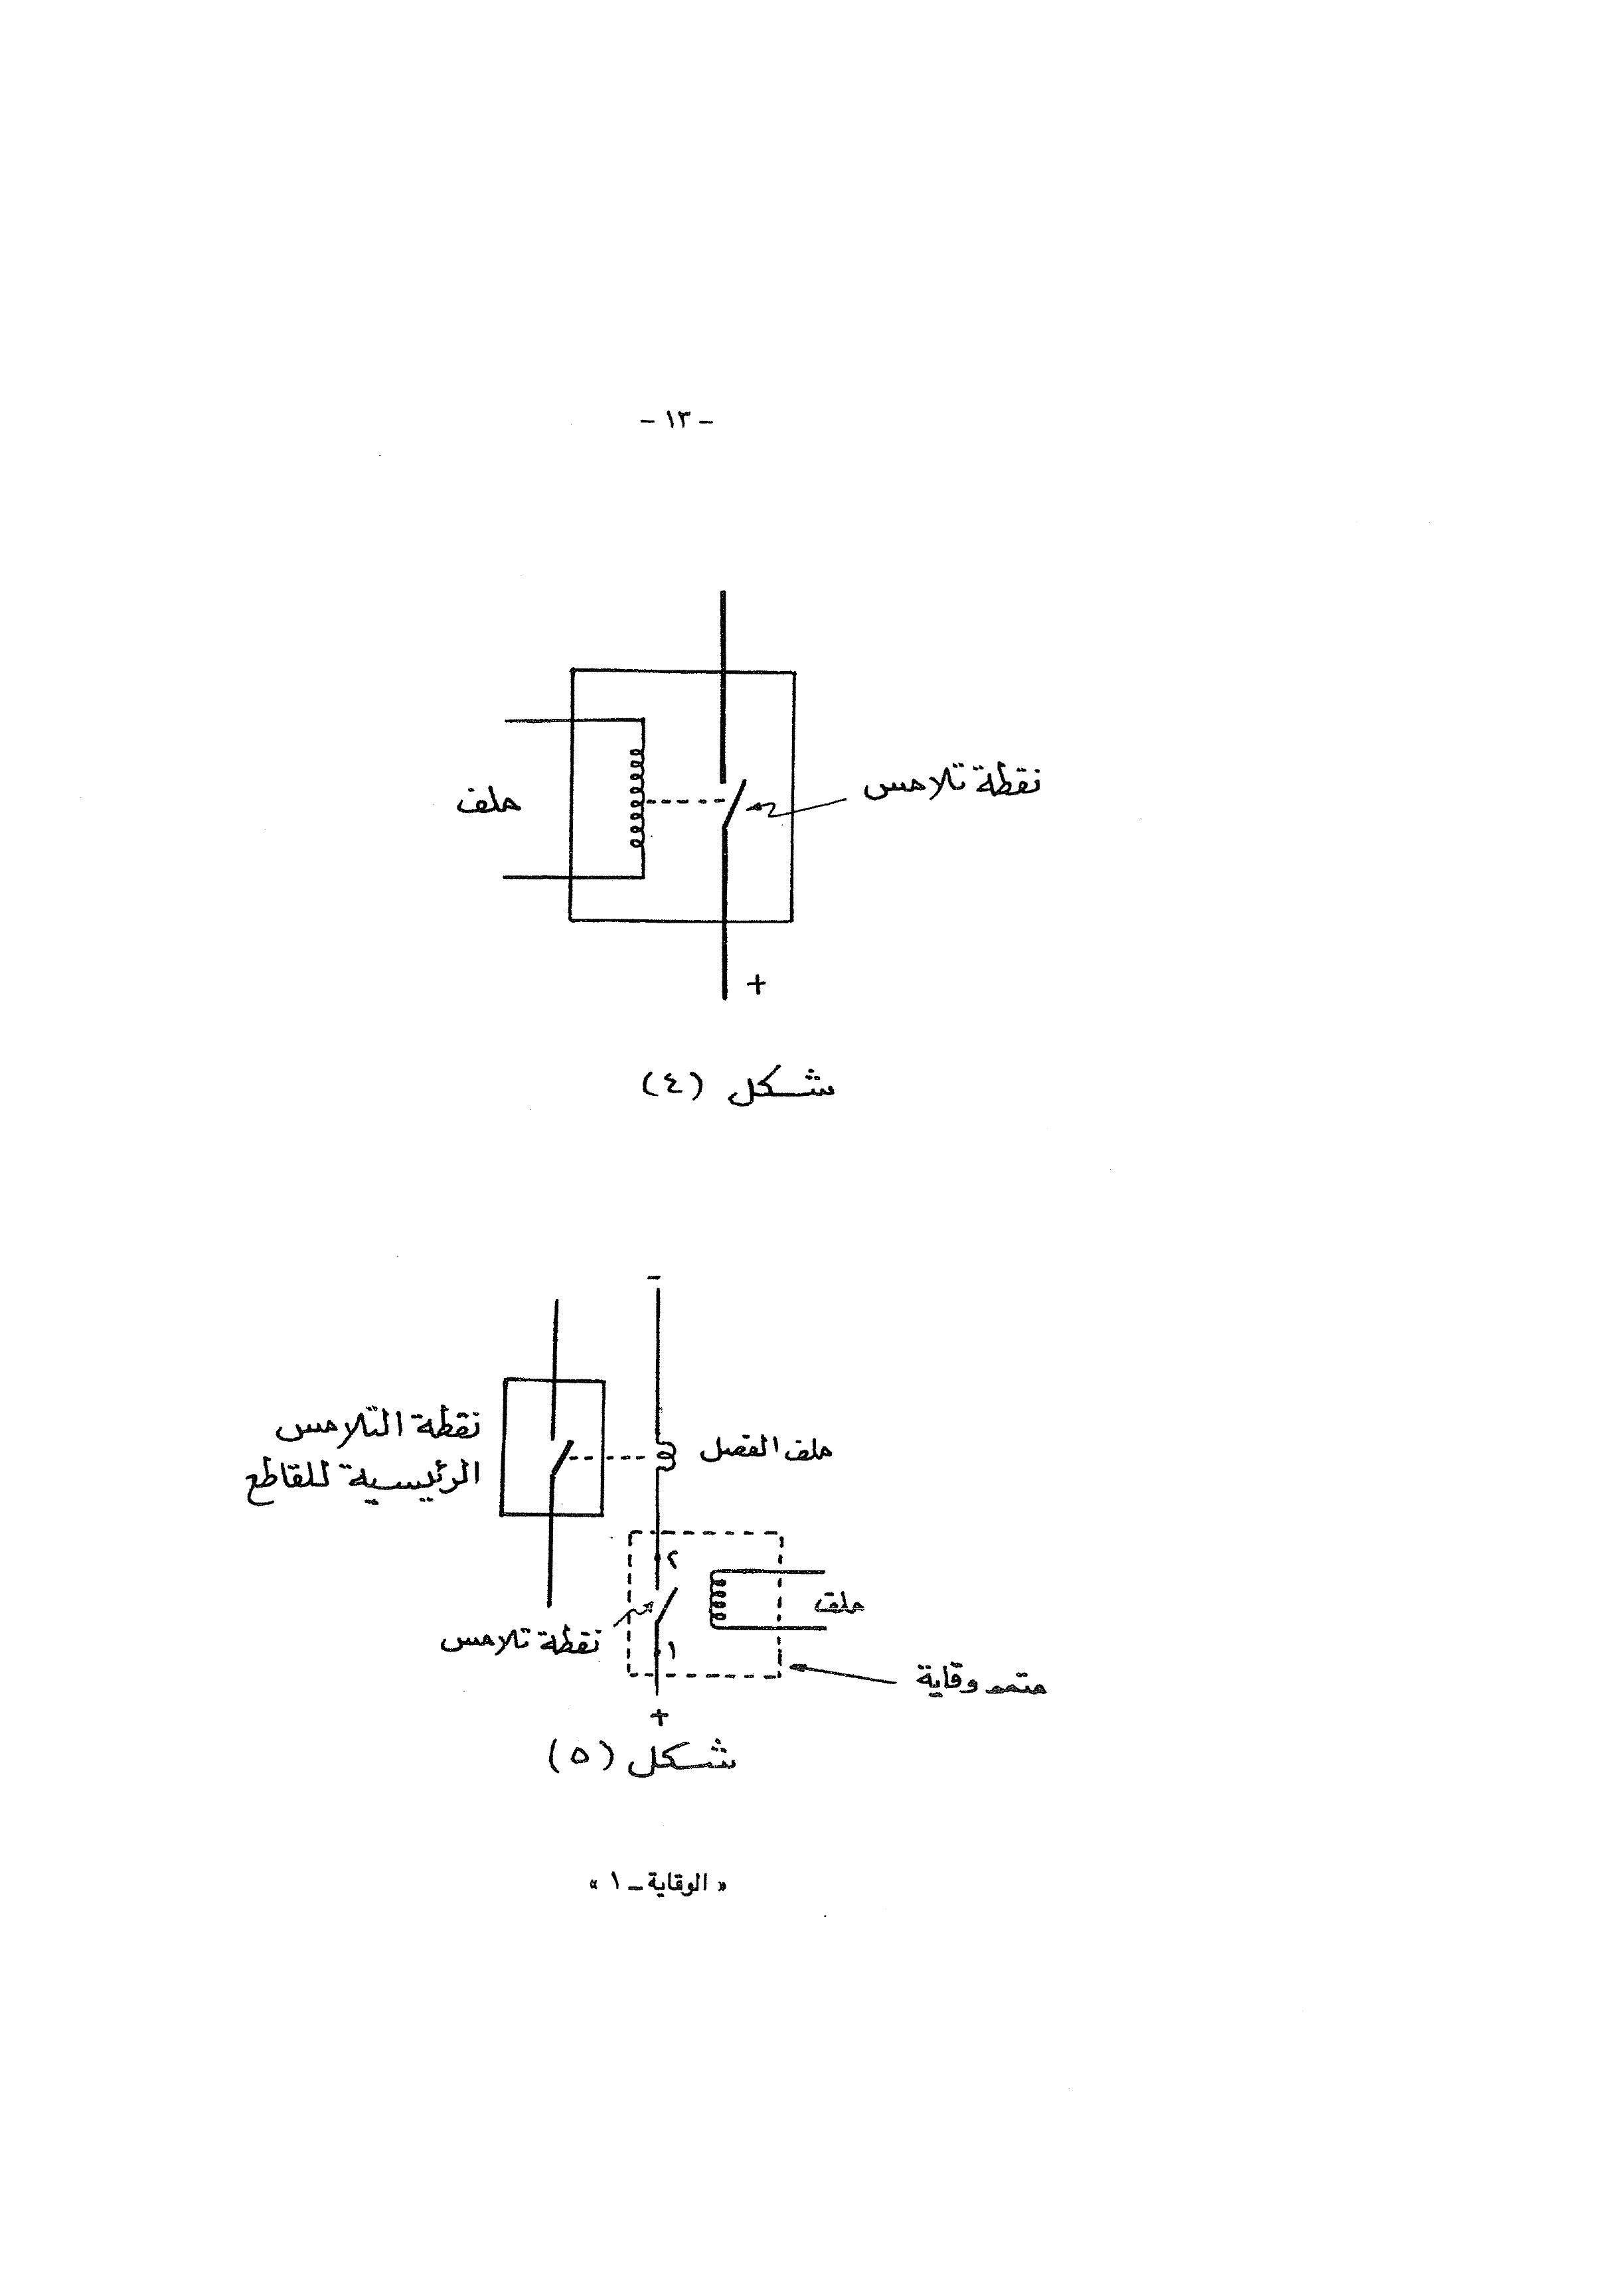 - ١٣ -
نقطة تلامس
ملف
+
شكل (٤)
-
نقطة التلامس
الرئيسية للقاطع
ملف الفصل
٢
ملف
نقطة تلامس
١
متمم وقاية
+
شكل (٥)
« الوقاية ـ ١ »